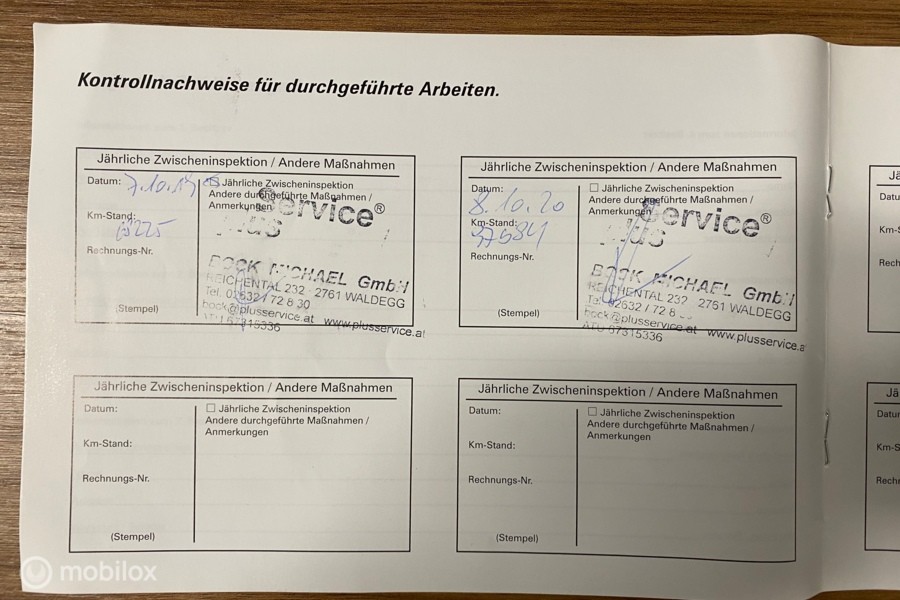 Kontrollnachweise für durchgeführte Arbeiten.
Jährliche Zwischeninspektion / Andere Maßnahmen
Datum: 7.10.19
Jährliche Zwischeninspektion
Andere durchgeführte Maßnahmen /
Anmerkungen
Km-Stand:
Rechnungs-Nr.
(Stempel)
Service®
Plus
BOCK MICHAEL GmbH
REICHENTAL 232 · 2761 WALDEGG
Tel. 02632 / 72 8 30
bock@plusservice.at www.plusservice.at
ATU 67315336
Jährliche Zwischeninspektion / Andere Maßnahmen
Datum: 8.10.20
Jährliche Zwischeninspektion
Andere durchgeführte Maßnahmen /
Anmerkungen
Km-Stand: 37584
Rechnungs-Nr.
(Stempel)
Service®
Plus
BOCK MICHAEL GmbH
REICHENTAL 232 · 2761 WALDEGG
Tel. 02632 / 72 8
bock@plusservice.at www.plusservice.a
ATU 67315336
Jährliche Zwischeninspektion / Andere Maßnahmen
Datum:
Jährliche Zwischeninspektion
Andere durchgeführte Maßnahmen /
Anmerkungen
Km-Stand:
Rechnungs-Nr.
(Stempel)
Jährliche Zwischeninspektion / Andere Maßnahmen
Datum:
Jährliche Zwischeninspektion
Andere durchgeführte Maßnahmen /
Anmerkungen
Km-Stand:
Rechnungs-Nr.
(Stempel)
Jä
Datu
Km-S
Rech
Jä
Datu
Km-S
Rech
mobilox